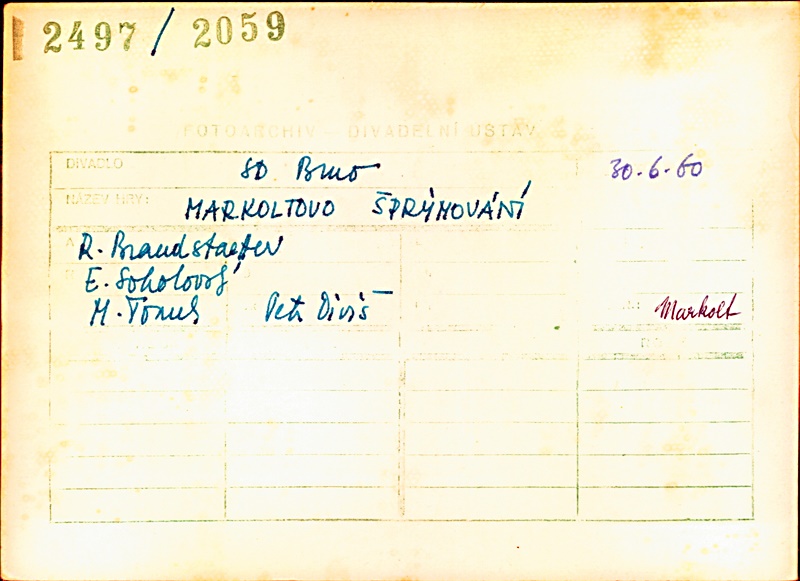 2497 / 2059
FOTOARCHIV – DIVADELNÍ ÚSTAV
DIVADLO
SD Brno
30.6.60
NÁZEV HRY:
MARKOLTOVO ŠPRÝMOVÁNÍ
R. Brandstaetter
E. Sokolovský
M. Tomek Petr Diviš
Markolt